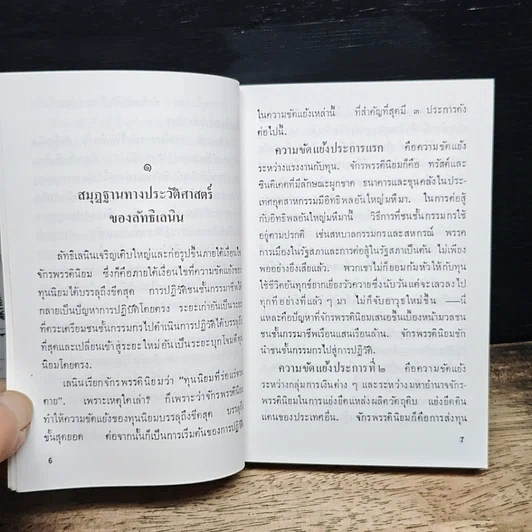 ๑
สมุฏฐานทางประวัติศาสตร์
ของลัทธิเลนิน
ลัทธิเลนินเจริญเติบใหญ่และก่อรูปขึ้นภายใต้เงื่อนไข
จักรพรรดินิยม ซึ่งก็คือภายใต้เงื่อนไขที่ความขัดแย้งของ
ทุนนิยมได้บรรลุถึงขีดสุด การปฏิวัติชนชั้นกรรมาชีพได้
กลายเป็นปัญหาการปฏิบัติโดยตรง ระยะเก่าอันเป็นระยะ
ที่ตระเตรียมชนชั้นกรรมกรไปดำเนินการปฏิวัติได้บรรลุถึง
ที่สุดและเปลี่ยนเข้าสู่ระยะใหม่อันเป็นระยะบุกโจมตีทุน
นิยมโดยตรง
เลนินเรียกจักรพรรดินิยมว่า “ทุนนิยมที่ร่อแร่จวน
ตาย”. เพราะเหตุใดเล่า? ก็เพราะว่าจักรพรรดินิยม
ทำให้ความขัดแย้งของทุนนิยมบรรลุถึงขีดสุด บรรลุถึง
ขั้นสุดยอด ต่อจากนั้นก็เป็นการเริ่มต้นของการปฏิวัติ
6
ในความขัดแย้งเหล่านี้ ที่สำคัญที่สุดมี ๓ ประการดัง
ต่อไปนี้.
ความขัดแย้งประการแรก คือความขัดแย้ง
ระหว่างแรงงานกับทุน. จักรพรรดินิยมก็คือ ทรัสต์และ
ซินดิเคตที่มีลักษณะผูกขาด ธนาคารและขุนคลังในประเท
ศอุตสาหกรรมมีอิทธิพลอันใหญ่มหึมา. ในการต่อสู้
กับอิทธิพลอันใหญ่มหึมานี้ วิธีการที่ชนชั้นกรรมกรใช้
อยู่ตามปรกติ เช่นสหบาลกรรมกรและสหกรณ์ พรรค
การเมืองในรัฐสภาและการต่อสู้ในรัฐสภาเป็นต้น ไม่เพียง
พออย่างยิ่งเสียแล้ว. พวกเขาไม่ก็ยอมก้มหัวให้กับทุน
ใช้ชีวิตอันทุกข์ยากเยี่ยงวัวควาย ซึ่งนับวันแต่จะเลวลงไป
ทุกที่อย่างที่แล้ว ๆ มา ไม่ก็จับอาวุธใหม่ขึ้น —นี่
แหละคือปัญหาที่จักรพรรดินิยมเสนอขึ้นเบื้องหน้ามวลชน
ชนชั้นกรรมาชีพเรือนแสนเรือนล้าน. จักรพรรดินิยมชัก
นำชนชั้นกรรมกรไปสู่การปฏิวัติ.
ความขัดแย้งประการที่ ๒ คือความขัดแย้ง
ระหว่างกลุ่มการเงินต่าง ๆ และระหว่างมหาอำนาจจักร-
พรรดินิยมในการแย่งยึดแหล่งผลิตวัตถุดิบ แย่งยึดดิน
แดนของประเทศอื่น. จักรพรรดินิยมก็คือการส่งทุน
7